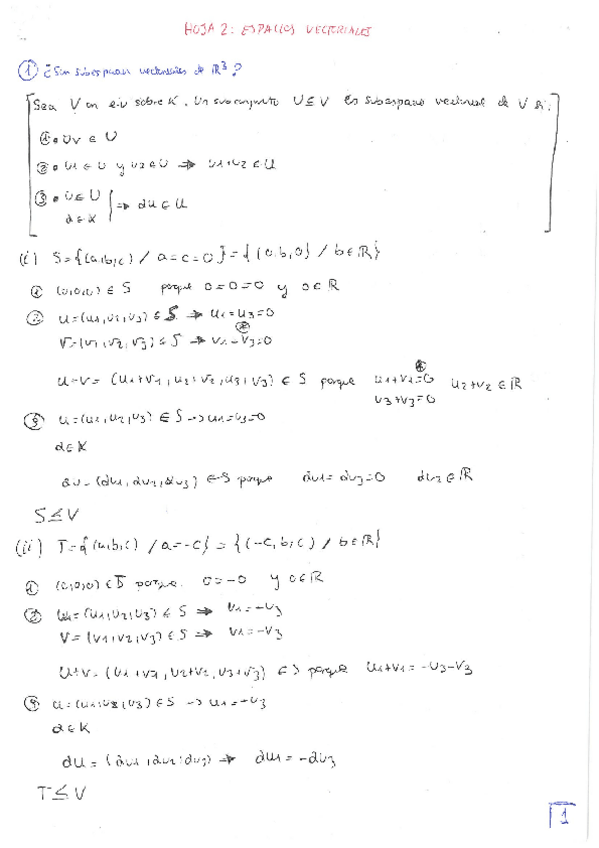 HOJA 2: ESPACIOS VECTORIALES
① ¿Son subespacios vectoriales de ℝ³?
Sea V un e.v sobre K. Un subconjunto U ⊆ V es subespacio vectorial de V si:
① • 0v ∈ U
② • u1 ∈ U y u2 ∈ U ⇒ u1+u2 ∈ U
③ • u ∈ U
α ∈ K } ⇒ αu ∈ U
(i) S={(a,b,c) / a=c=0} = {(0,b,0) / b∈ℝ}
① (0,0,0) ∈ S porque 0=0=0 y 0∈ℝ
② u=(u1,u2,u3) ∈ S ⇒ u1=u3=0
V=(v1,v2,v3) ∈ S → v1=v3=0
u+v= (u1+v1, u2+v2, u3+v3) ∈ S porque u1+v1=0 u2+v2 ∈ℝ
u3+v3=0
③ u=(u1,u2,u3) ∈ S → u1=u3=0
α∈K
αu=(αu1, αu2, αu3) ∈ S porque αu1=αu3=0 αu2∈ℝ
S≤V
(ii) T={(a,b,c) / a=-c} = {(-c,b,c) / b∈ℝ}
① (0,0,0) ∈ T porque 0=-0 y 0∈ℝ
② u=(u1,u2,u3) ∈ S ⇒ u1=-u3
V=(v1,v2,v3) ∈ S ⇒ v1=-v3
u+v=(u1+v1, u2+v2, u3+v3) ∈ S porque u1+v1=-u3-v3
③ u=(u1,u2,u3) ∈ S → u1=-u3
α∈K
αu=(αu1, αu2, αu3) ⇒ αu1=-αu3
T≤V
1